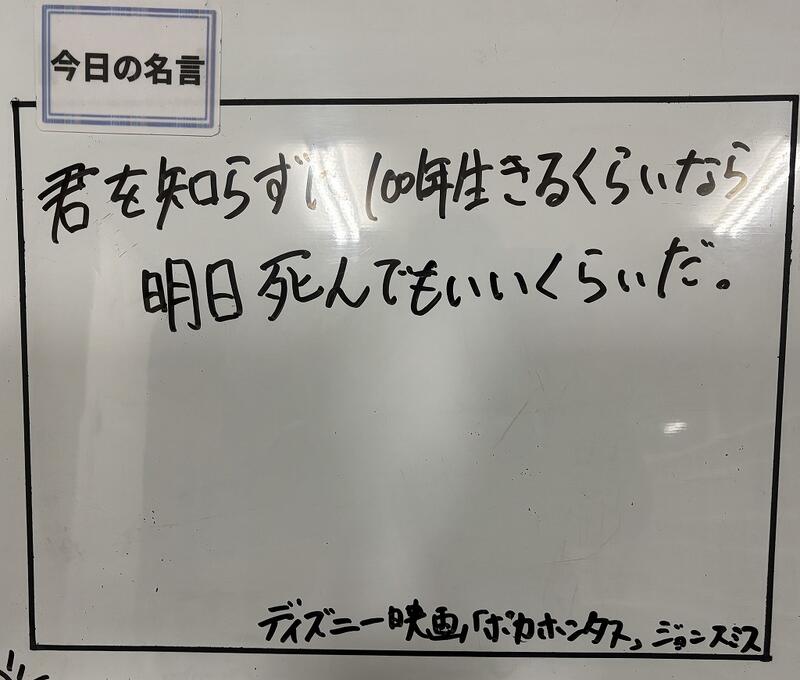 今日の名言
君を知らずに100年生きるくらいなら
明日死んでもいいくらいだ。
ディズニー映画「ポカホンタス」ジョンスミス